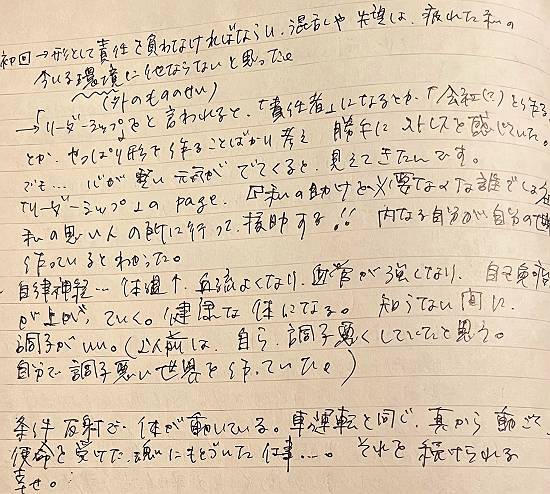 初回→形として責任を負わなければならない、混乱しや失望は、疲れた私の
今いる環境に他ならないと思った。
(外のもののせい)
→「リーダーシップ」をと言われると、「責任者」になるとか、「会社(口)を作る
とか、やっぱり形を作ることばかり考え 勝手にストレスを感じていた。
でも… 心が軽い 元気が でてくると、見えてきたんです。
「リーダーシップ」の page.『私の助けを必要なのは誰でしょう
私の思い人の所に行って、援助する!! 内なる自分が自分の世
作っているとわかった。
自律神経… 体温↑、血流よくなり、血管が強くなり、自己免疫
が上がっていく。健康な体になる。 知らない間に、
調子がいい。(以前は、自ら、調子悪くしていたと思う。
自分で調子悪い世界を作っていた。)
条件反射で、体が動いている。車の運転と同じ、真から動ごて
使命を受けた、魂にもとづいた仕事…。それを続けられる
幸せ。